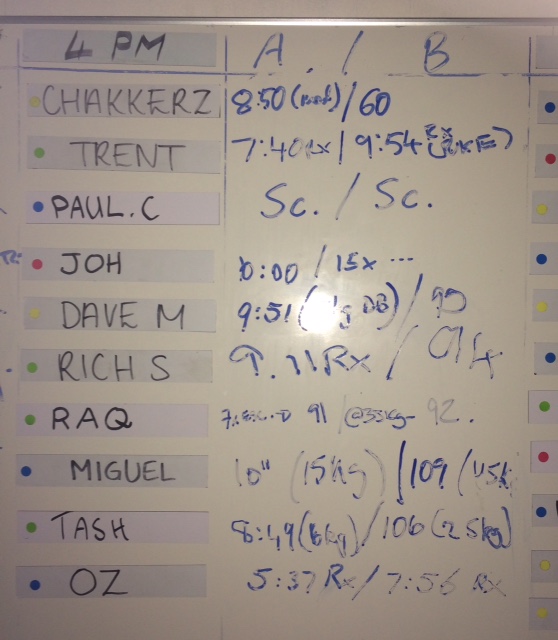 4 PM A. / B
CHAKKERZ 8:50 (mod) / 60
TRENT 7:40 Rx / 9:54 Rx
PAUL.C Sc. / Sc.
JOH 10:00 / 15x ...
DAVE M 9:51 ( DB) / 90
RICH S 9.11 Rx / 94
RAQ 91 / @35kg- 92.
MIGUEL 10" (15kg) / 109 (45k
TASH 8:49 (6kg) / 106 (25kg)
OZ 5:37 Rx / 7:56 Rx